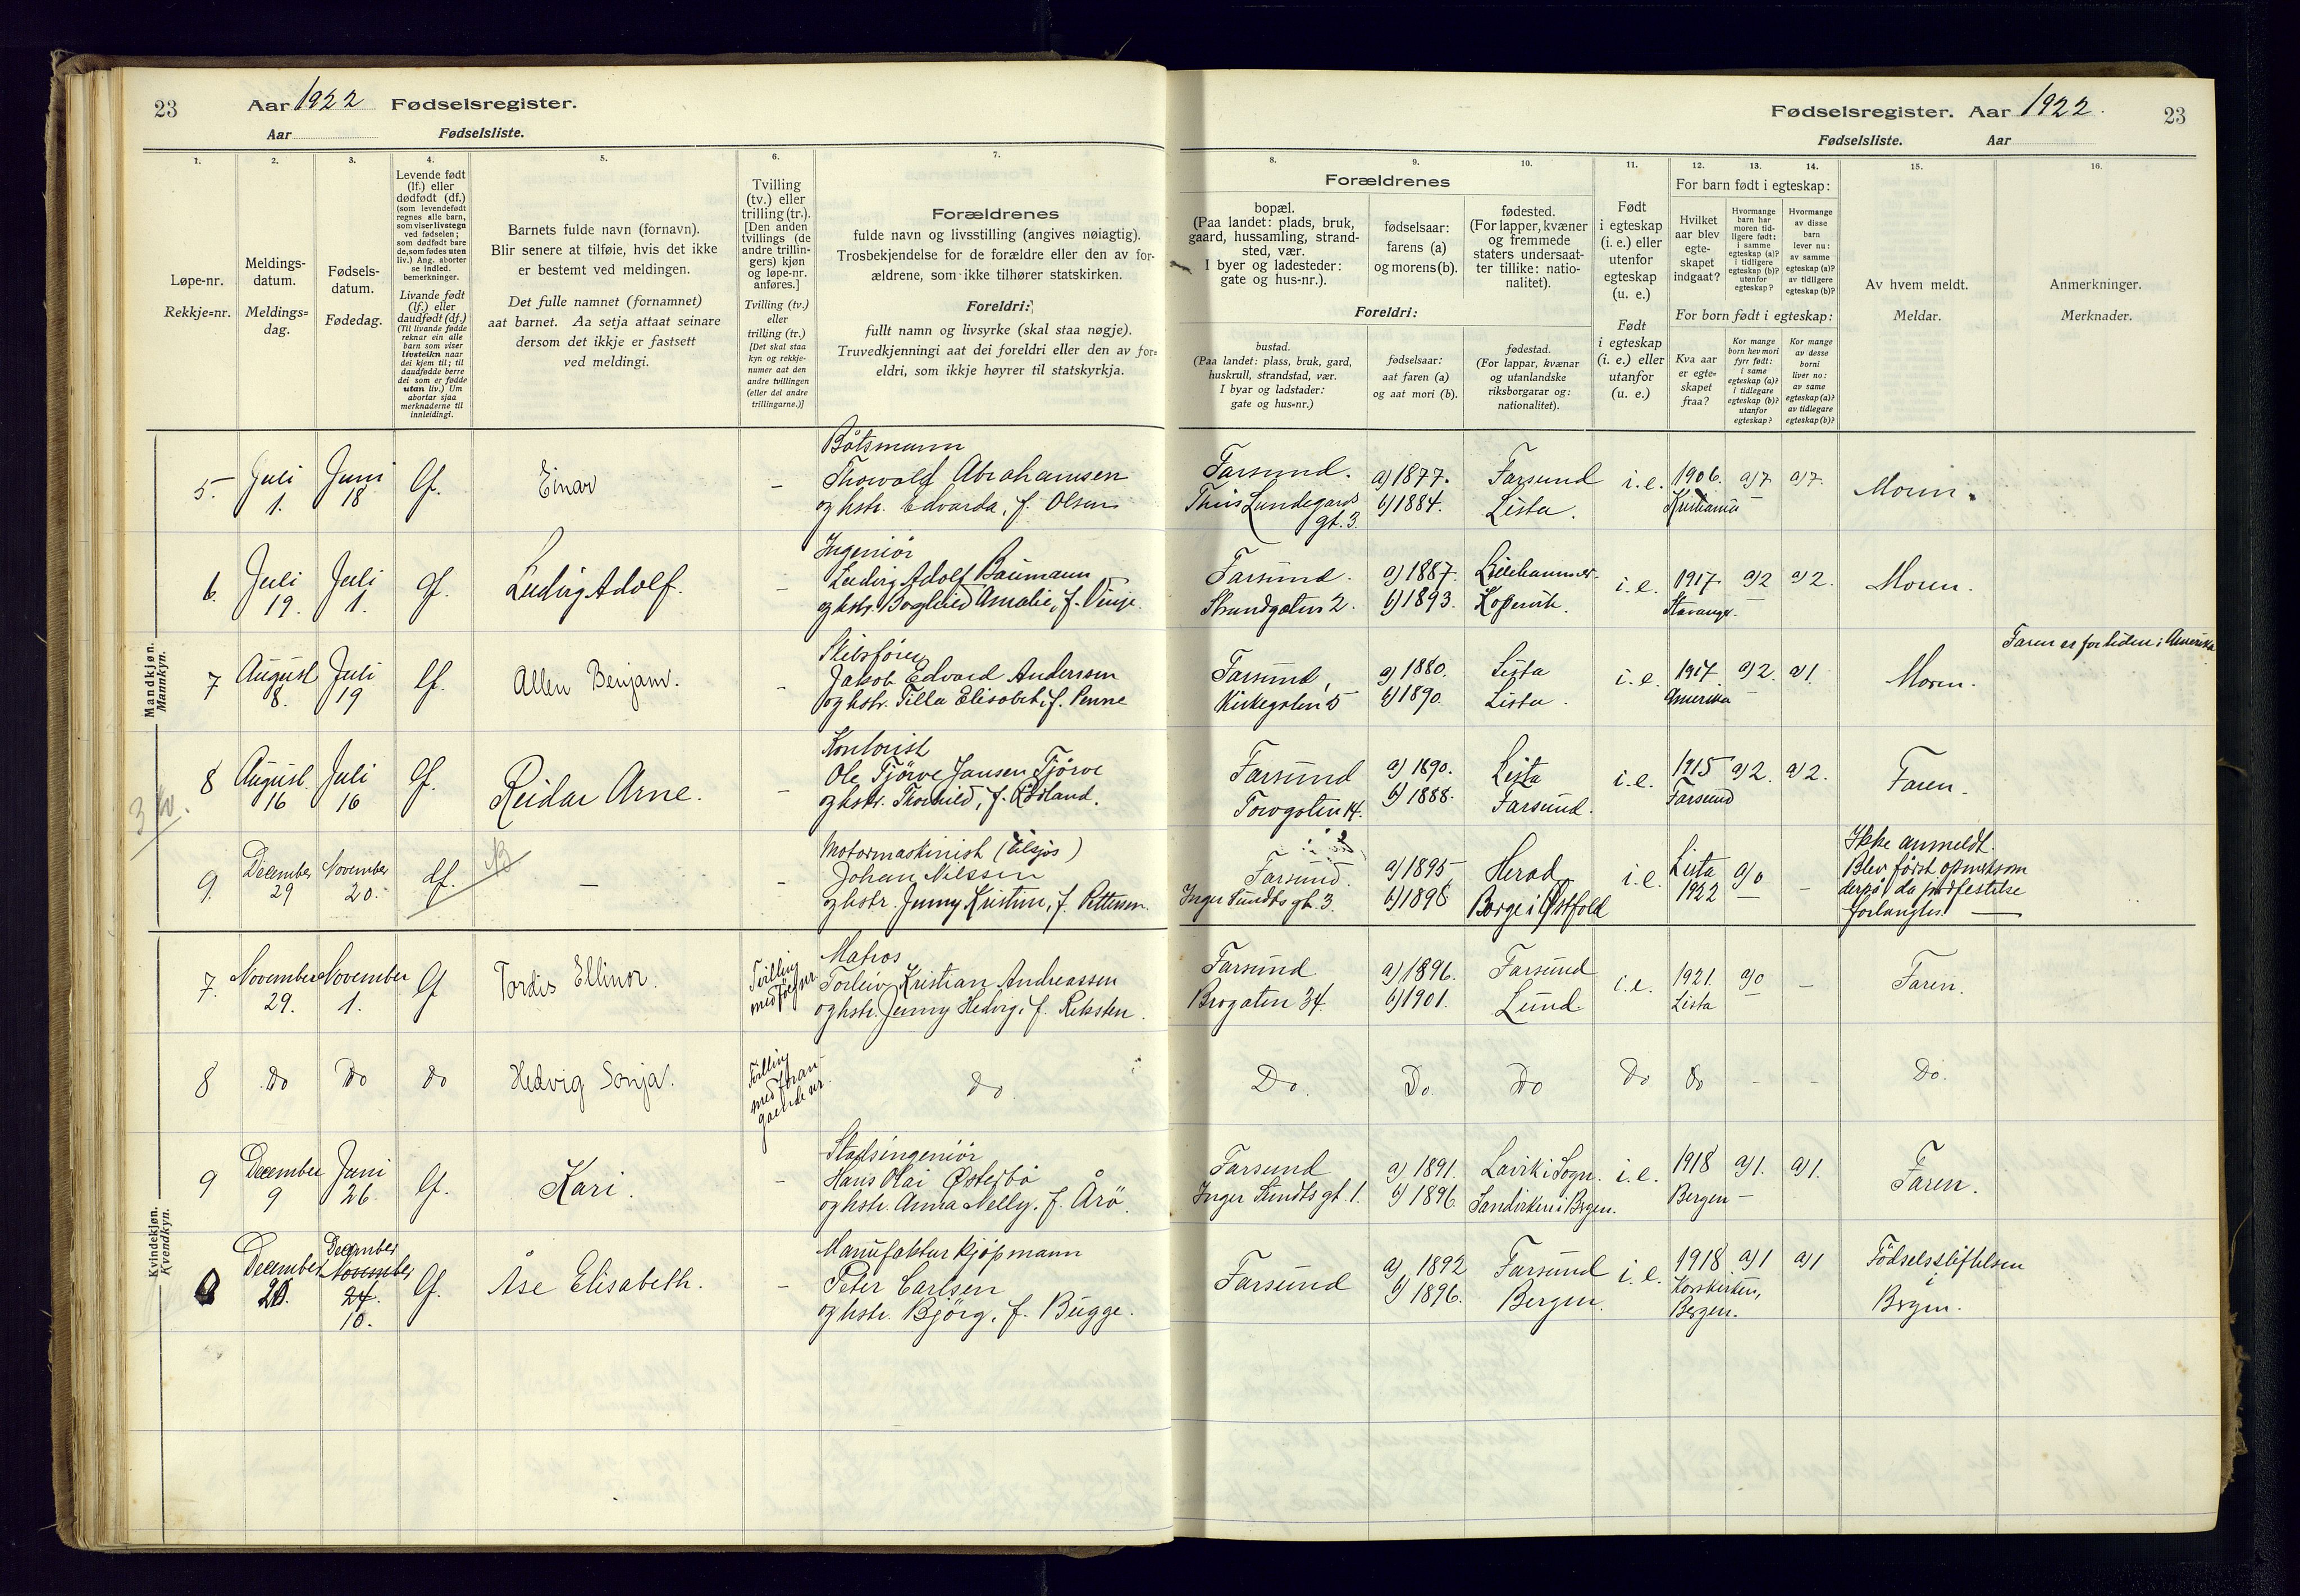 23
Aar 1922 Fødselsregister.
Aar Fødselsliste.
1.
Løpe-nr.
Rekkje=nr.
2.
Meldings-
datum.
Meldings=
dag.
3.
Fødsels-
datum.
Fødedag.
4.
Levende født
(lf.) eller
dødfødt (df.)
(som levendefødt
regnes alle barn,
som viser livstegn
ved fødselen;
som dødfødt bare
de, som fødes uten
liv.) Ang. aborter
se indled.
bemerkninger.
Livande født
(lf.) eller
daudfødt (df.)
(Til livande fødde
reknar ein alle
barn som viser
livsteikn naar
dei kjem til; til
daudfødde berre
dei som er fødde
utan liv.) Um
abortar sjaa
merknaderne til
innleidingi.
5.
Barnets fulde navn (fornavn).
Blir senere at tilføie, hvis det ikke
er bestemt ved meldingen.
Det fulle namnet (fornamnet)
aat barnet. Aa setja attaat seinare
dersom det ikkje er fastsett
ved meldingi.
6.
Tvilling
(tv.) eller
trilling (tr.).
[Den anden
tvillings (de
andre trillin-
gers) kjøn
og løpe-nr.
anføres.]
Tvilling (tv.)
eller
trilling (tr.)
[Det skal staa
kyn og rekkje-
numer aat den
andre tvillingen
(eller dei andre
trillingarne.)]
7.
Forældrenes
fulde navn og livsstilling (angives nøiagtig).
Trosbekjendelse for de forældre eller den av for-
ældrene, som ikke tilhører statskirken.
Foreldri:
fullt namn og livsyrke (skal staa nøgje).
Truvedkjenningi aat dei foreldri eller den av for=
eldri, som ikkje høyrer til statskyrkja.
Mandkjøn.
Mannkyn.
5. Juli 1. Juni 18 lf. Einar –
Båtsmann
Thorvald Abrahamsen
og hstr. Edvarda, f. Olsen
6. Juli 19. Juli 1. lf. Ludvig Adolf. –
Ingeniør
Ludvig Adolf Baumann
og hstr. Borghild Amalie, f. Vinje.
7 August 8. Juli 19 lf. Allen Benjam. –
Skibsfører
Jakob Edvard Anderssen
og hstr. Tilla Elisabet, f. Penne
8 August 16 Juli 16 lf. Reidar Arne. –
Kontorist
Ole Tjörve Jansen Tjörve
og hstr. Thorhild, f. Rødland.
9. December 29 November 20. df. –
Motormaskinist (tilsjøs)
Johan Nilssen
og hstr. Jenny Kristine, f. Pettersen.
Kvindekjøn.
Kvendkyn.
7. November 29. November 1. lf Tordis Ellinor. Tvilling med følg. nr
Matros
Torleiv Kristian Andreassen
og hstr. Jenny Hedvig, f. Reksten.
8 do do do Hedvig Sonja. Tvilling med foran- gaaende nr. do
9 December 9 Juni 26. lf. Kari. –
Stadsingeniør
Hans Olai Østerbø
og hstr. Anna Nelly, f. Årö.
December 20. December November 24. 10. lf. Åse Elisabeth. –
Manufaktur kjøpmann
Peter Carlsen
og hstr. Björg, f. Bugge.
Fødselsregister. Aar 1922.
23
Fødselsliste. Aar
8.
Forældrenes
bopæl.
(Paa landet: plads, bruk,
gaard, hussamling, strand-
sted, vær.
I byer og ladesteder:
gate og hus-nr.).
Foreldri:
bustad.
(Paa landet: plass, bruk, gard,
huskrull, strandstad, vær.
I byar og ladstader:
gate og hus=nr.)
9.
fødselsaar:
farens (a)
og morens (b).
fødselsaar:
aat faren (a)
og aat mori (b).
10.
fødested.
(For lapper, kvæner
og fremmede
staters undersaat-
ter tillike: natio-
nalitet).
fødestad.
(For lappar, kvænar
og utanlandske
riksborgarar og:
nationalitet).
11.
Født
i egteskap
(i. e.) eller
utenfor
egteskap
(u. e.)
Født
i egteskap
(i. e.) eller
utanfor
(u. e.)
12.
For barn født i egteskap:
Hvilket
aar blev
egte-
skapet
indgaat?
For born født i egteskap:
Kva aar
er egte=
skapet
fraa?
13.
Hvormange
barn har
moren tid-
ligere født:
i samme
egteskap (a)?
i tidligere
egteskap (b)?
utenfor
egteskap?
Kor mange
born hev mori
fyrr født:
i same
egteskap (a)?
i tidlegare
egteskap (b)?
utanfor
egteskap?
14.
Hvormange
av disse
barn
lever nu:
av samme
egteskap (a)?
av tidligere
egteskap (b)?
Kor mange
av desse
borni
liver no:
av same
egteskap (a)?
av tidlegare
egteskap (b)?
15.
Av hvem meldt.
Meldar.
16.
Anmerkninger.
Merknader.
Farsund. a) 1877. Farsund i. e. 1906. a) 7. a) 7. Moren.
Thiis Lundegards gt. 3. b) 1884. Lista. Kristiania
Farsund. a) 1887. Lillehammer. i. e. 1917. a) 2 a) 2. Moren.
Strandgaten 2. b) 1893. Kopervik. Stavanger.
Faren er for tiden i Amerika
Farsund, a) 1880. Lista i. e. 1917. a) 2. a) 1. Moren.
Kirkegaten 5 b) 1890. Lista. Amerika
Farsund a) 1890. Lista i. e. 1915 a) 2. a) 2. Faren.
Torvgaten 14. b) 1888. Farsund. Farsund
Farsund. a) 1895 Herad i. e. Lista a) 0 –
Inger Sundts gt. 3. b) 1898 Borge i Østfold 1922
Ikke anmeldt.
Blev først opmerksom
derpå da jordfestelse
forlangtes.
Farsund a) 1896. Farsund i. e. 1921. a) 0 – Faren.
Brogaten 34. b) 1901. Lund. Lista
Do. Do. Do do do – – Do.
Farsund a) 1891. Lavik i Sogn. i. e. 1918 a) 1. a) 1. Faren.
Inger Sundts gt. 1. b) 1896. Sandviken i Bergen. Bergen
Farsund a) 1892 Farsund i. e. 1918. a) 1 a) 1 Fødselsstiftelsen
b) 1896. Bergen. Korskirken, Bergen. i Bergen.